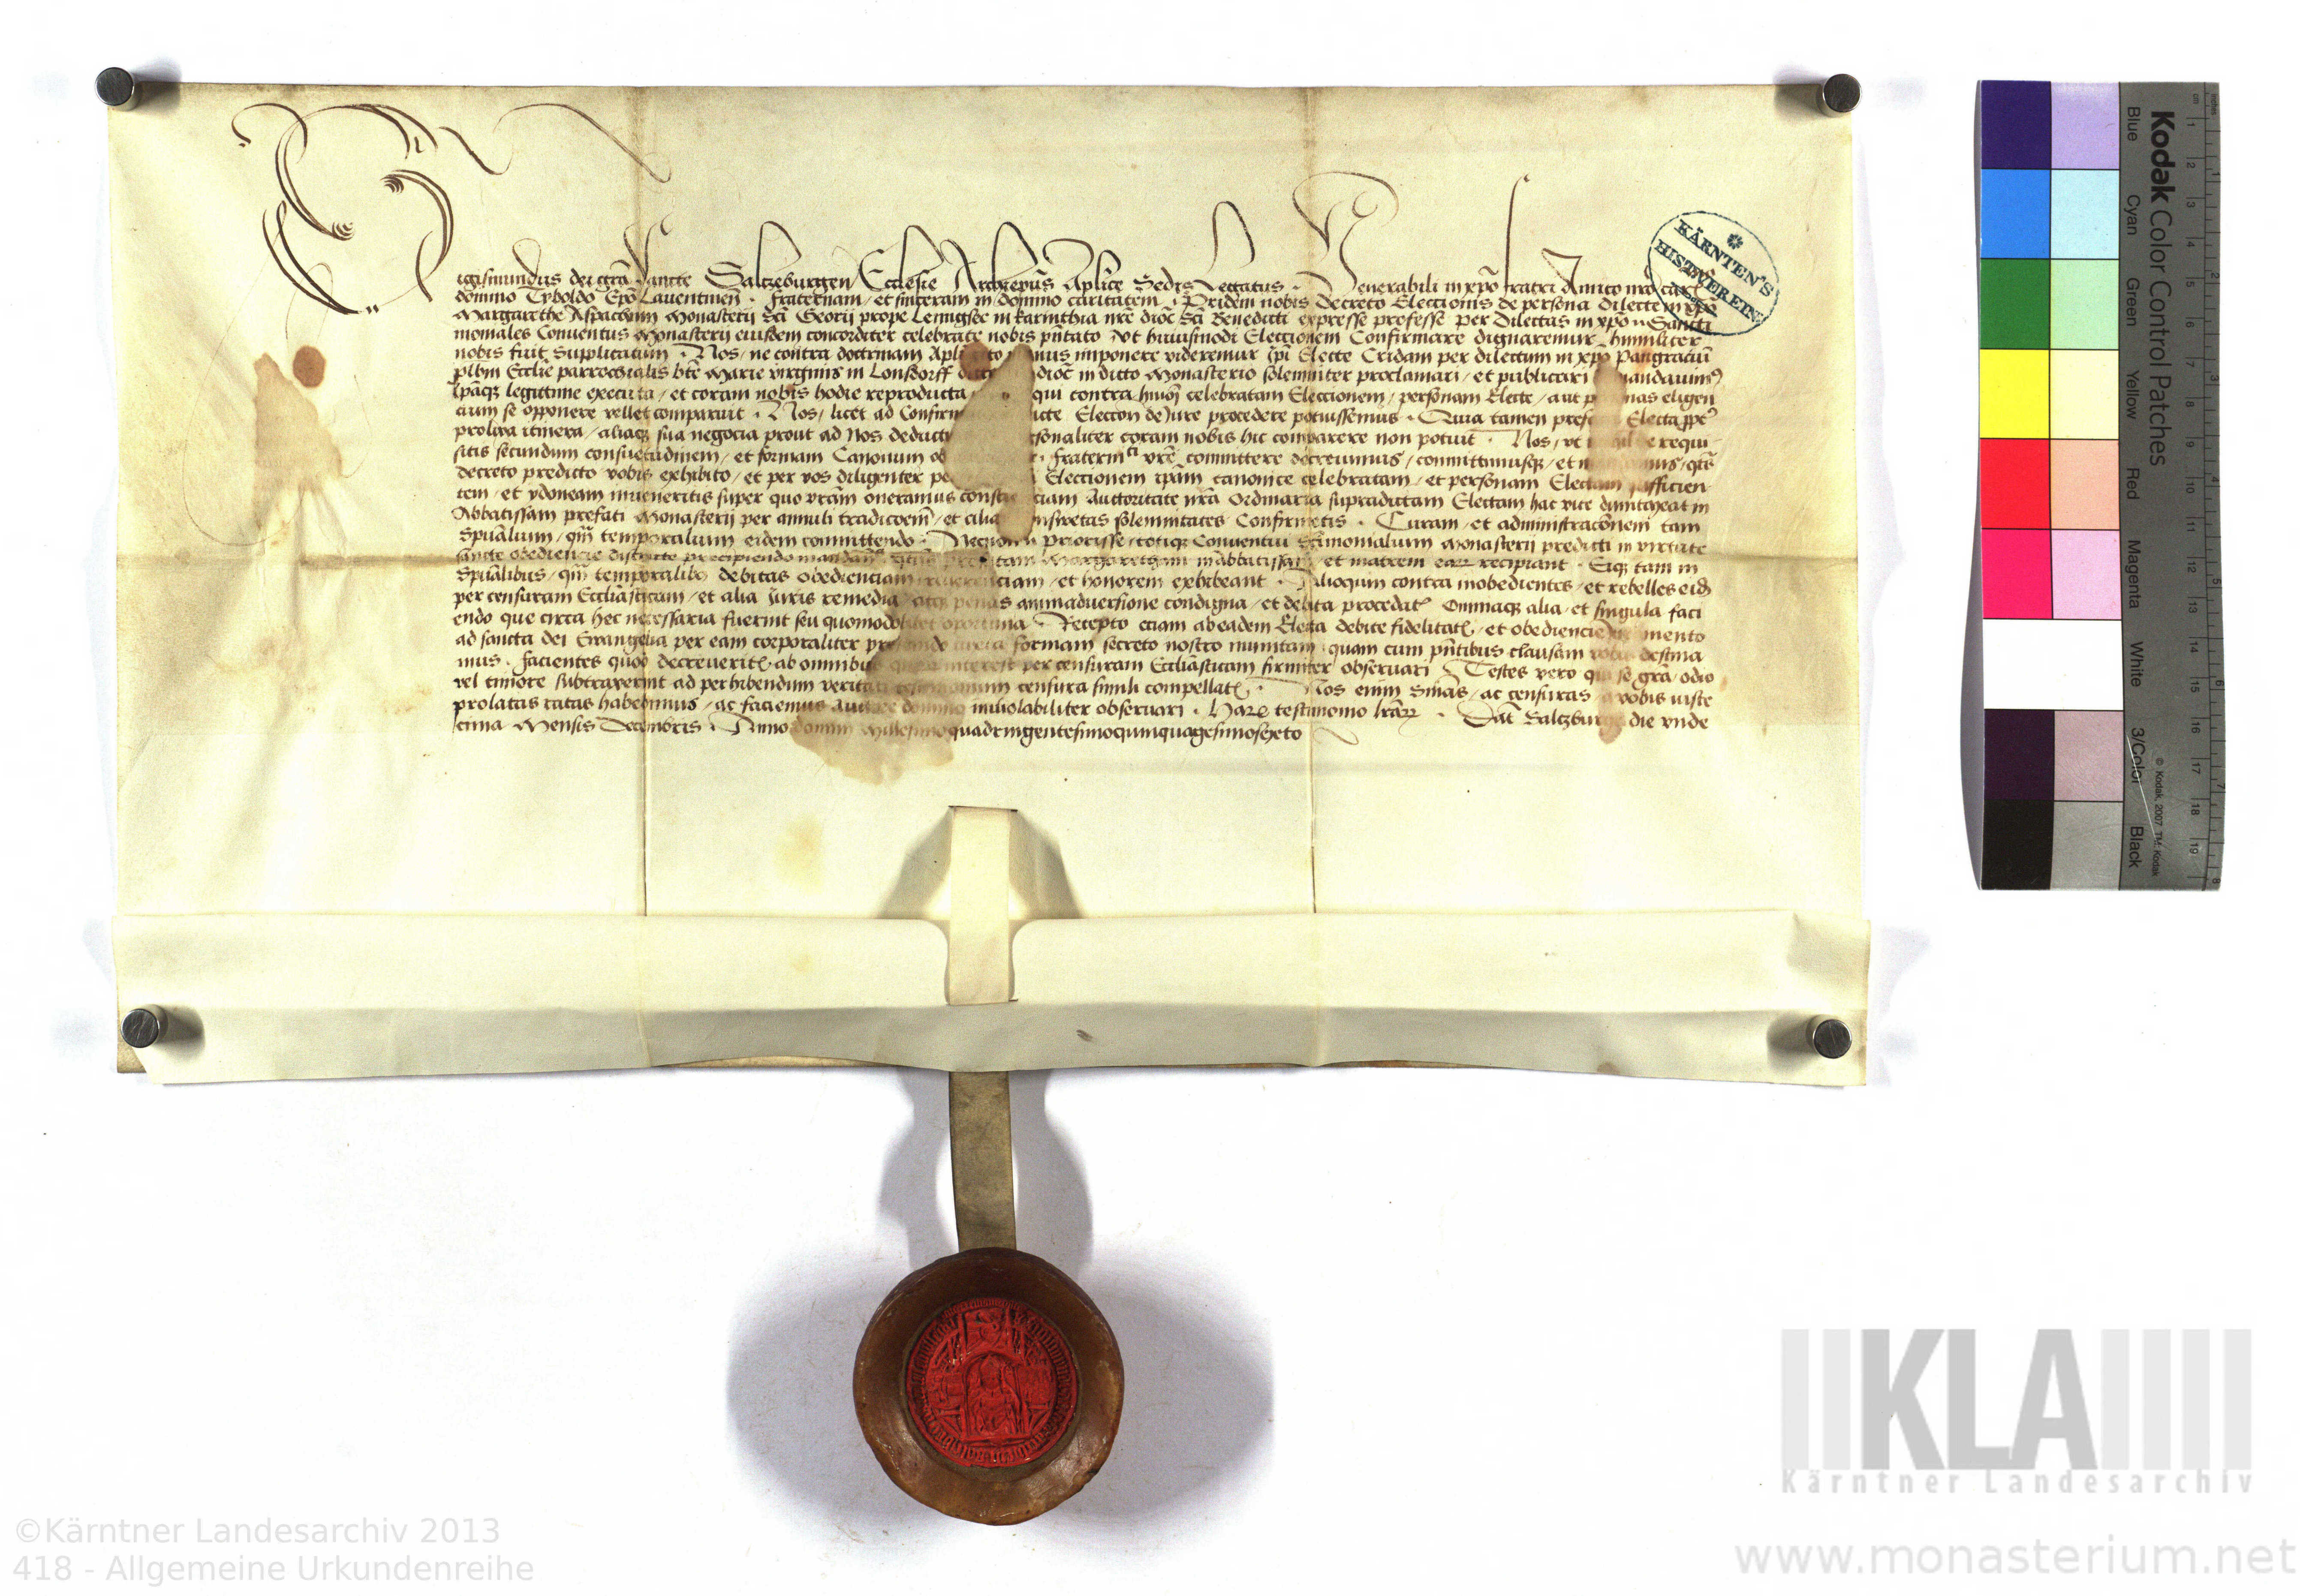 Sigismundus dei gra sancte Saltzeburgen Ecclesie Archiepus Aplice Sedis Legatus . Venerabili in xpo fratri Amico nro car
domino Tyboldo Epo Lauentinen . fraternam / et sinceram in domino caritatem . Pridem nobis decreto Eleccionis de persona dilecte in xpo
Margarethe Aspachin Monasterij sci Georij prope Lenngsee in karinthia nre dioc sci Benedicti expresse professe per dilectas in xpo Sancti
moniales Conuentus Monasterij eiusdem concorditer celebrate nobis pntato vt huiusmodi Eleccionem Confirmare dignaremur humiliter
nobis fuit supplicatum . Nos / ne contra doctrinam Apli manus imponere videremur ipi Electe Cridam per dilectum in xpo Pangracium
plbm Ecclie parrochialis bte Marie virginis in Lonsdorff dioc in dicto Monasterio solemniter proclamari / et publicari mandauim9
Ipaq legittime executa / et coram nobis hodie reproducta qui contra hmoi celebratam Eleccionem / personam Electe / aut eligen
cium se opponere vellet comparuit . Nos / licet ad Confirm Eleccon de Jure procedere potuissemus . Quia tamen Electa ppt
prolixa itinera / aliaq sua negocia prout ad Nos deduct personaliter coram nobis hic comparere non potuit . Nos / vt requi
sitis secundum consuetudinem / et formam Canonum fraternti vre committere decreuimus / committimusq / et qts
decreto predicto vobis exhibito / et per vos diligenter Eleccionem ipam canonice celebratam / et personam Electam sufficien
tem / et ydoneam inueneritis super quo vram oneramus consc ciam Auctoritate nra Ordinaria supradictam Electam hac vice dumtaxat in
Abbatissam prefati Monasterij per annuli tradicoem / et alia consuetas solemnitates Confirmetis . Curam / et administraconem tam
Spualium / qm temporalium eidem committendo . Necnon Priorisse / totiq Conuentui Sctimonialium Monasterij predicti in virtute
sancte obediencie districte precipiendo mandam9 qtus Margaretham in abbatissam / et matrem earz recipiant . Eiq tam in
Spualibus / qm temporalibz debitas obedienciam reuerenciam / et honorem exhibeant . Alioquin contra inobedientes / et rebelles eid
per censuram Eccliasticam / et alia Juris remedia penas animaduersione condigna / et debita procedat Omniaq alia / et singula faci
endo que circa hec necessaria fuerint seu quomodolibet oportuna . Recepto eciam ab eadem Electa debite fidelitat / et obediencie Juramento
ad sancta dei Ewangelia per eam corporaliter prestando iuxta formam secreto nostro munitam / quam cum pntibus clausam vobis destina
mus . facientes quod decreueritis ab omnibus quorum interest per censuram Eccliasticam firmiter obseruari . Testes vero qui se gra / odio
vel timore subtraxerint ad perhibendum veritati testimonium censura simili compellat . Nos enim Snias / ac censuras a vobis iuste
prolatas ratas habebimus / ac faciemus Auctore domino inuiolabiliter obseruari . Harz testimonio lrarz . Dat Saltzburge die vnde
cima Mensis Decembris . Anno domini Millesimoquadringentesimoquinquagesimosexto
KÄRNTEN'S
HIST. VEREIN
Kodak Color Control Patches
Blue Cyan Green Yellow Red Magenta White 3/Color Black
© Kodak, 2007 TM: Kodak
cm 1 2 3 4 5 6 7 8 9 10 11 12 13 14 15 16 17 18 19
inches 1 2 3 4 5 6 7 8
KLA
Kärntner Landesarchiv
©Kärntner Landesarchiv 2013
418 - Allgemeine Urkundenreihe
www.monasterium.net